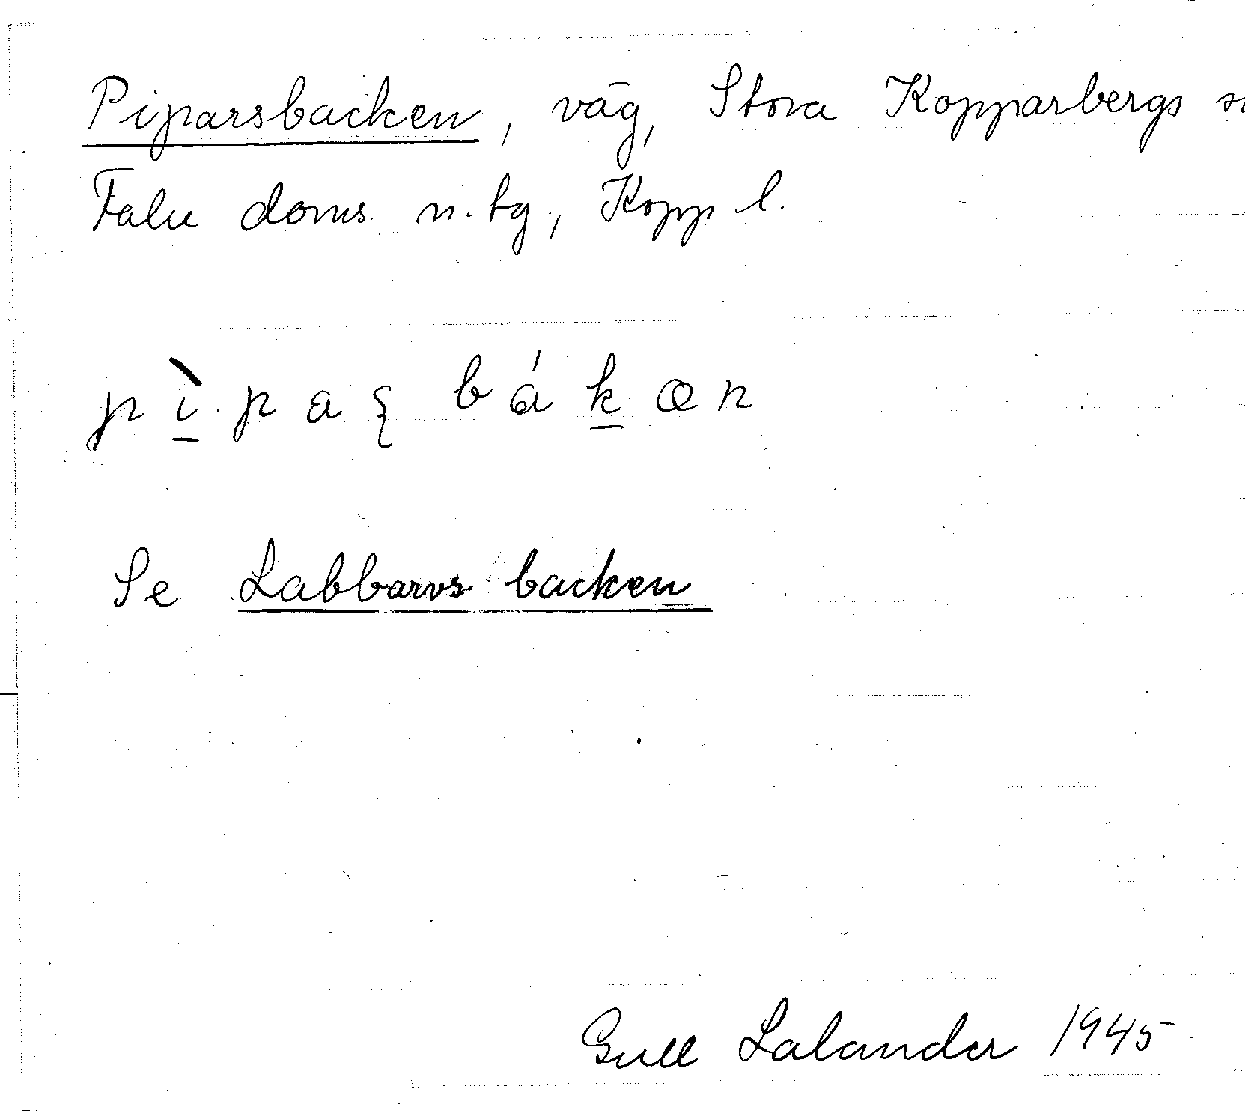 Piparsbacken, väg, Stora Kopparbergs sn
Falu doms. n. tg, Kopp l.
pì̱.paʂ báḵən
Se Labbarvsbacken
Gull Lalander 1945